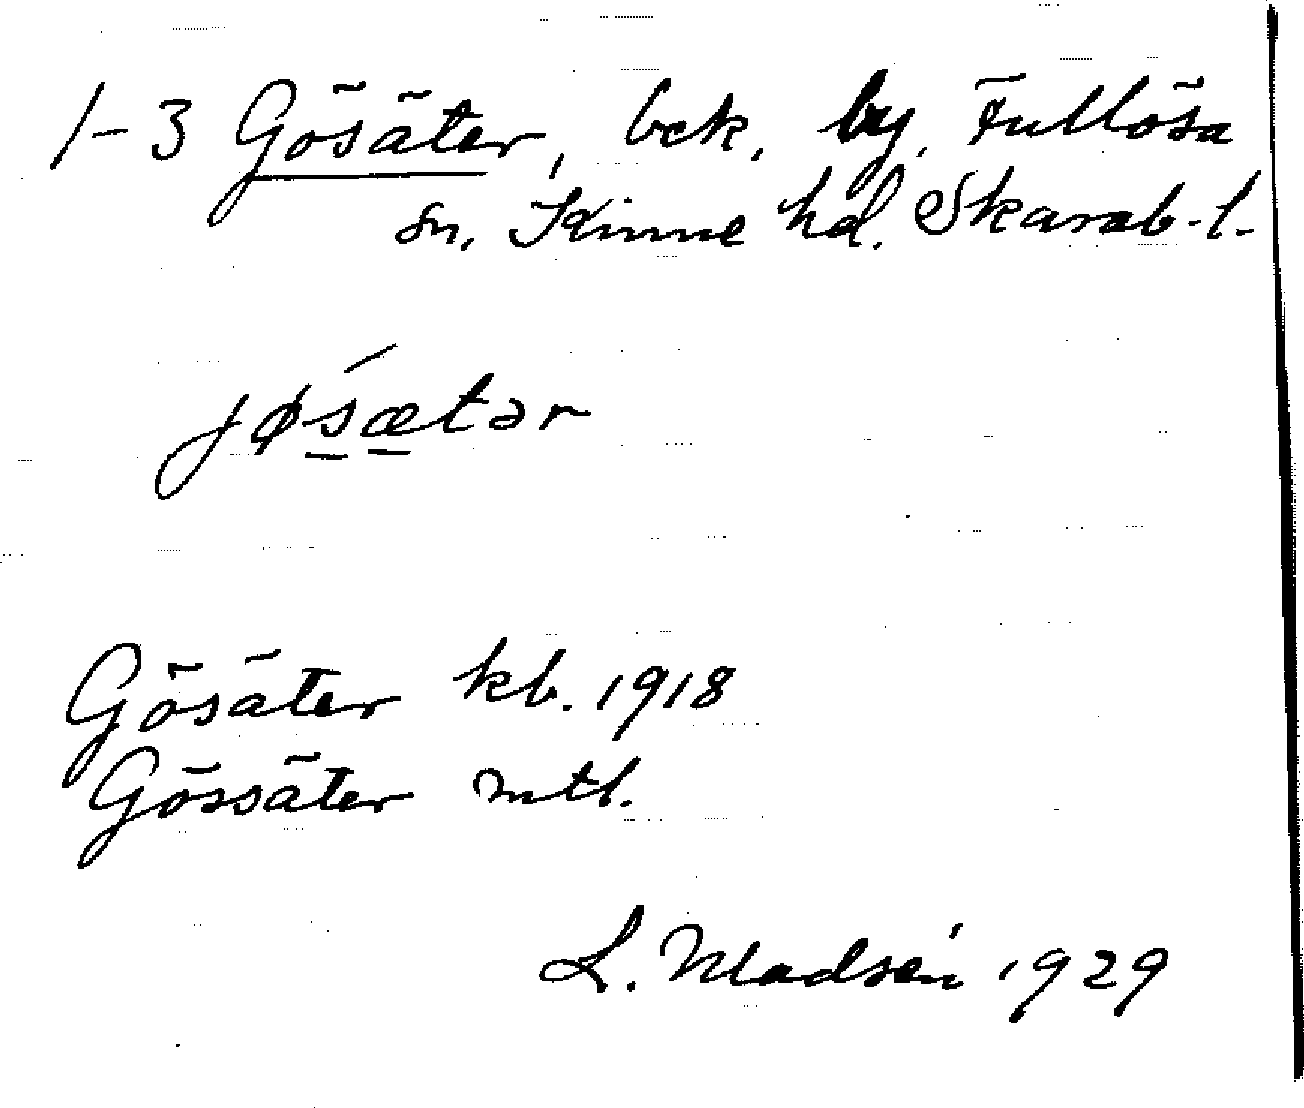 1-3 Gösäter, bek, by, Fullösa
sn, Kinne hd. Skarab-l.
jøsætər
Gösäter kb. 1918
Gössäter mtl.
L. Madsén 1929